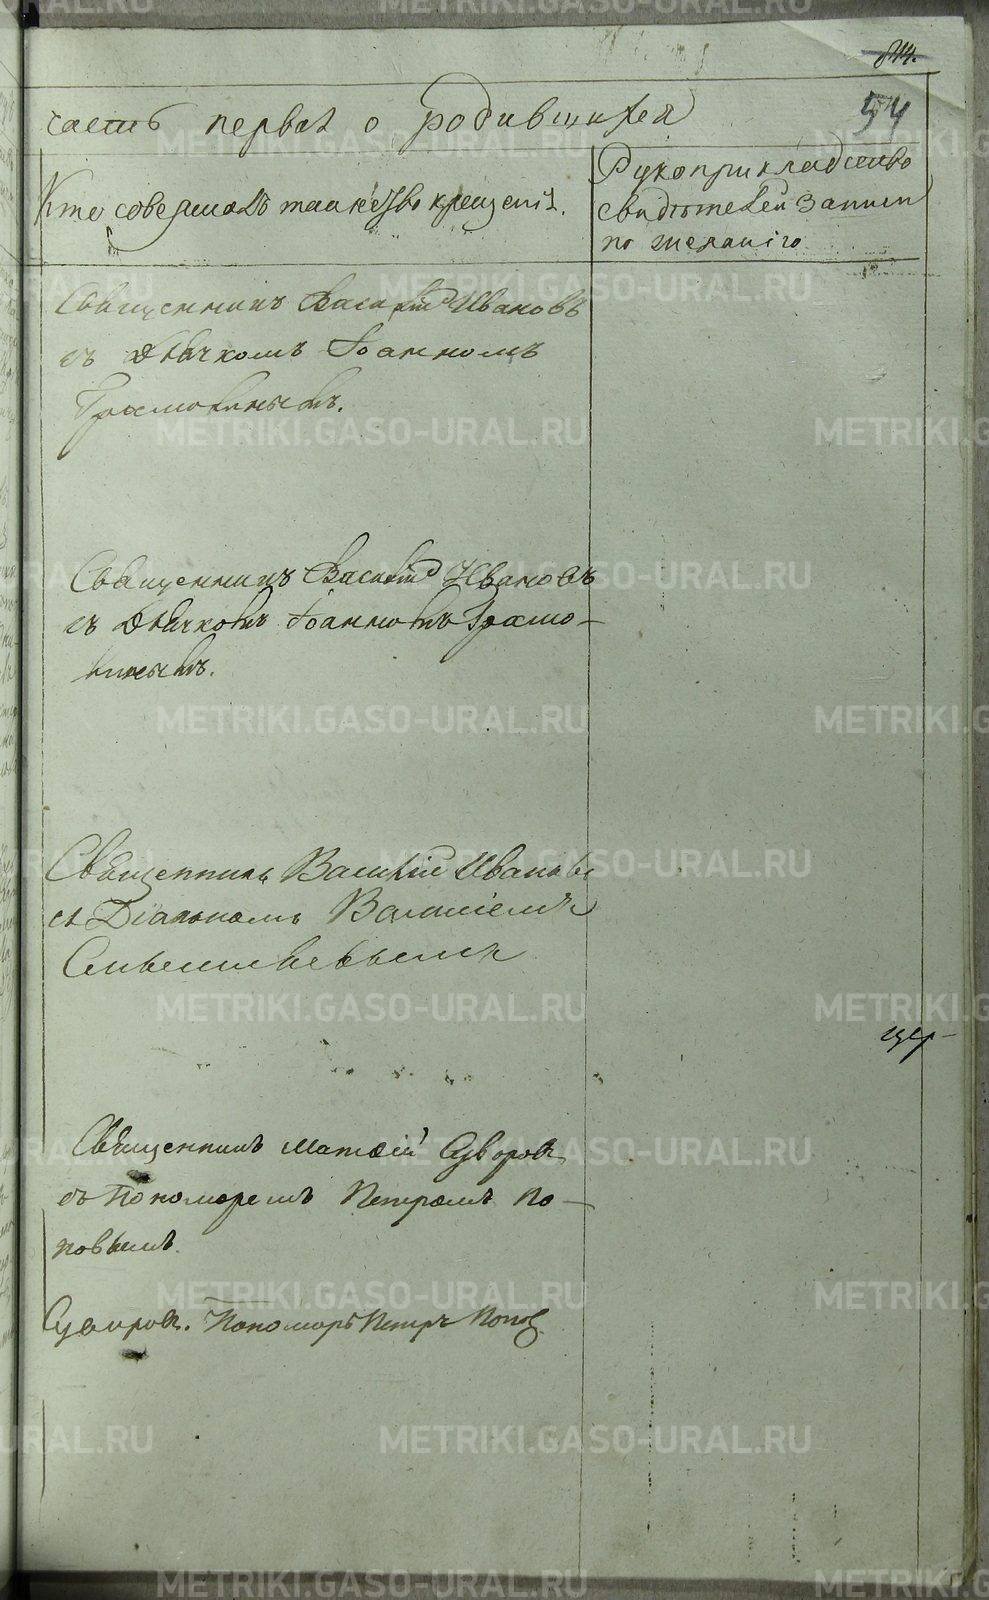 54
часть первая о родившихся
Кто совершалъ таинство крещенія.
Рукоприкладство
свидѣтелей записи
по желанію
Священникъ Василій Ивановъ
съ дьячкомъ Іоанномъ
Грамолинымъ.
Священникъ Василій Ивановъ
съ дьячкомъ Іоанномъ Грамо-
линымъ.
Священникъ Василій Ивановъ
съ Діакономъ Василіемъ
Священникъ Матѳій Суворовъ
съ пономаремъ Петромъ По-
повымъ.
Суворовъ. Пономарь Петръ Попов
METRIKI.GASO-URAL.RU